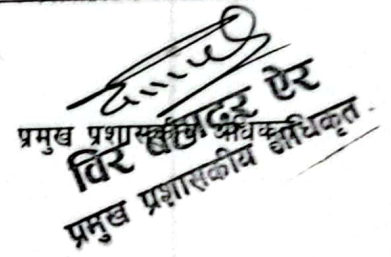 प्रमुख प्रशासकीय अधिकृत
विर बहादुर ऐर
प्रमुख प्रशासकीय अधिकृत